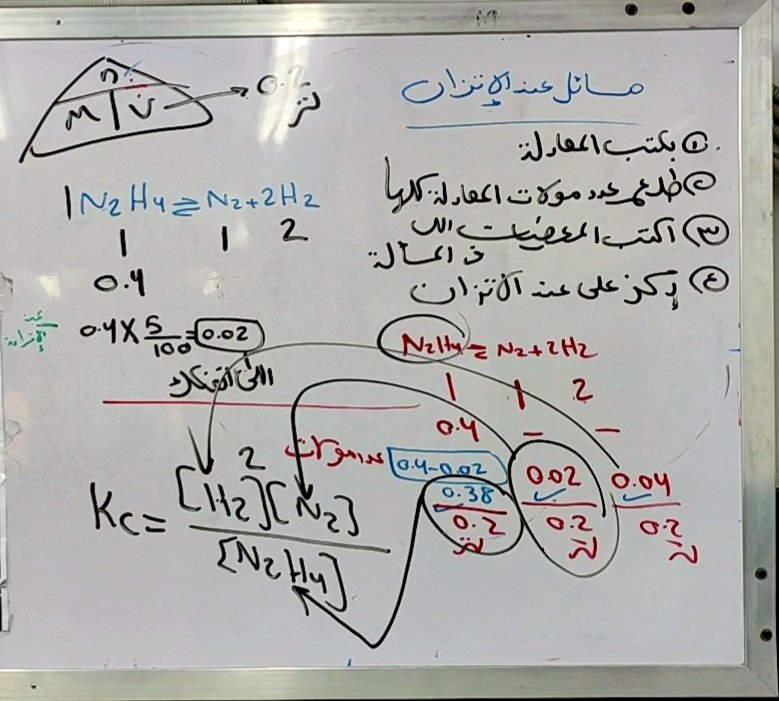 مسائل عند الإتزان
① بكتب المعادلة
② طلع عدد مولات المعادلة كلها
③ اكتب المعطيات اللى
فى المسألة
④ ركز على عند الاتزان
n
M | V → 0.2
لتر
1N2H4 ⇌ N2 + 2H2
1 1 2
0.4
عند
الإتزان
0.4 × 5/100 = 0.02
اللى اتفكك
N2H4 ⇌ N2 + 2H2
1 1 2
0.4 – –
عدد مولات 0.4-0.02 0.02 0.04
0.38
0.2 0.2 0.2
لتر
Kc = [H2]2 [N2] / [N2H4]